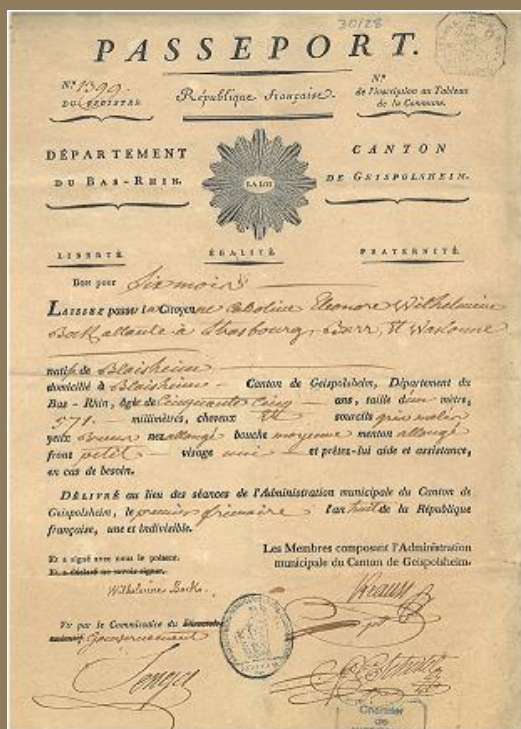 30/28
PASSEPORT.
N° 1399.
DU REGISTRE
République française.
N°
de l'inscription au Tableau
de la Commune.
DÉPARTEMENT
DU BAS-RHIN.
LA LOI
CANTON
DE GEISPOLSHEIM.
LIBERTÉ.
ÉGALITÉ.
FRATERNITÉ.
Bon pour Six mois
LAISSEZ passer la Citoyenne Caroline Eleonore Wilhelmine
Bock allante à Strasbourg, Barr, et
natif de Blaisheim
domicilié à Blaisheim Canton de Geispolsheim, Département du
Bas-Rhin, âgée de Cinquante Cinq ans, taille d'un mètre,
571. millimètres, cheveux et sourcils gris
yeux nez allongé bouche moyenne menton allongé
front petit visage uni et prêtez-lui aide et assistance,
en cas de besoin.
DÉLIVRÉ au lieu des séances de l'Administration municipale du Canton de
Geispolsheim, le premier frimaire l'an huit de la République
française, une et indivisible.
Et a signé avec nous le présent.
Et a déclaré ne savoir signer.
Les Membres composant l'Administration
municipale du Canton de Geispolsheim.
Wilhelmine Bock.
Vu par le Commissaire du Directoire
exécutif Gouvernement